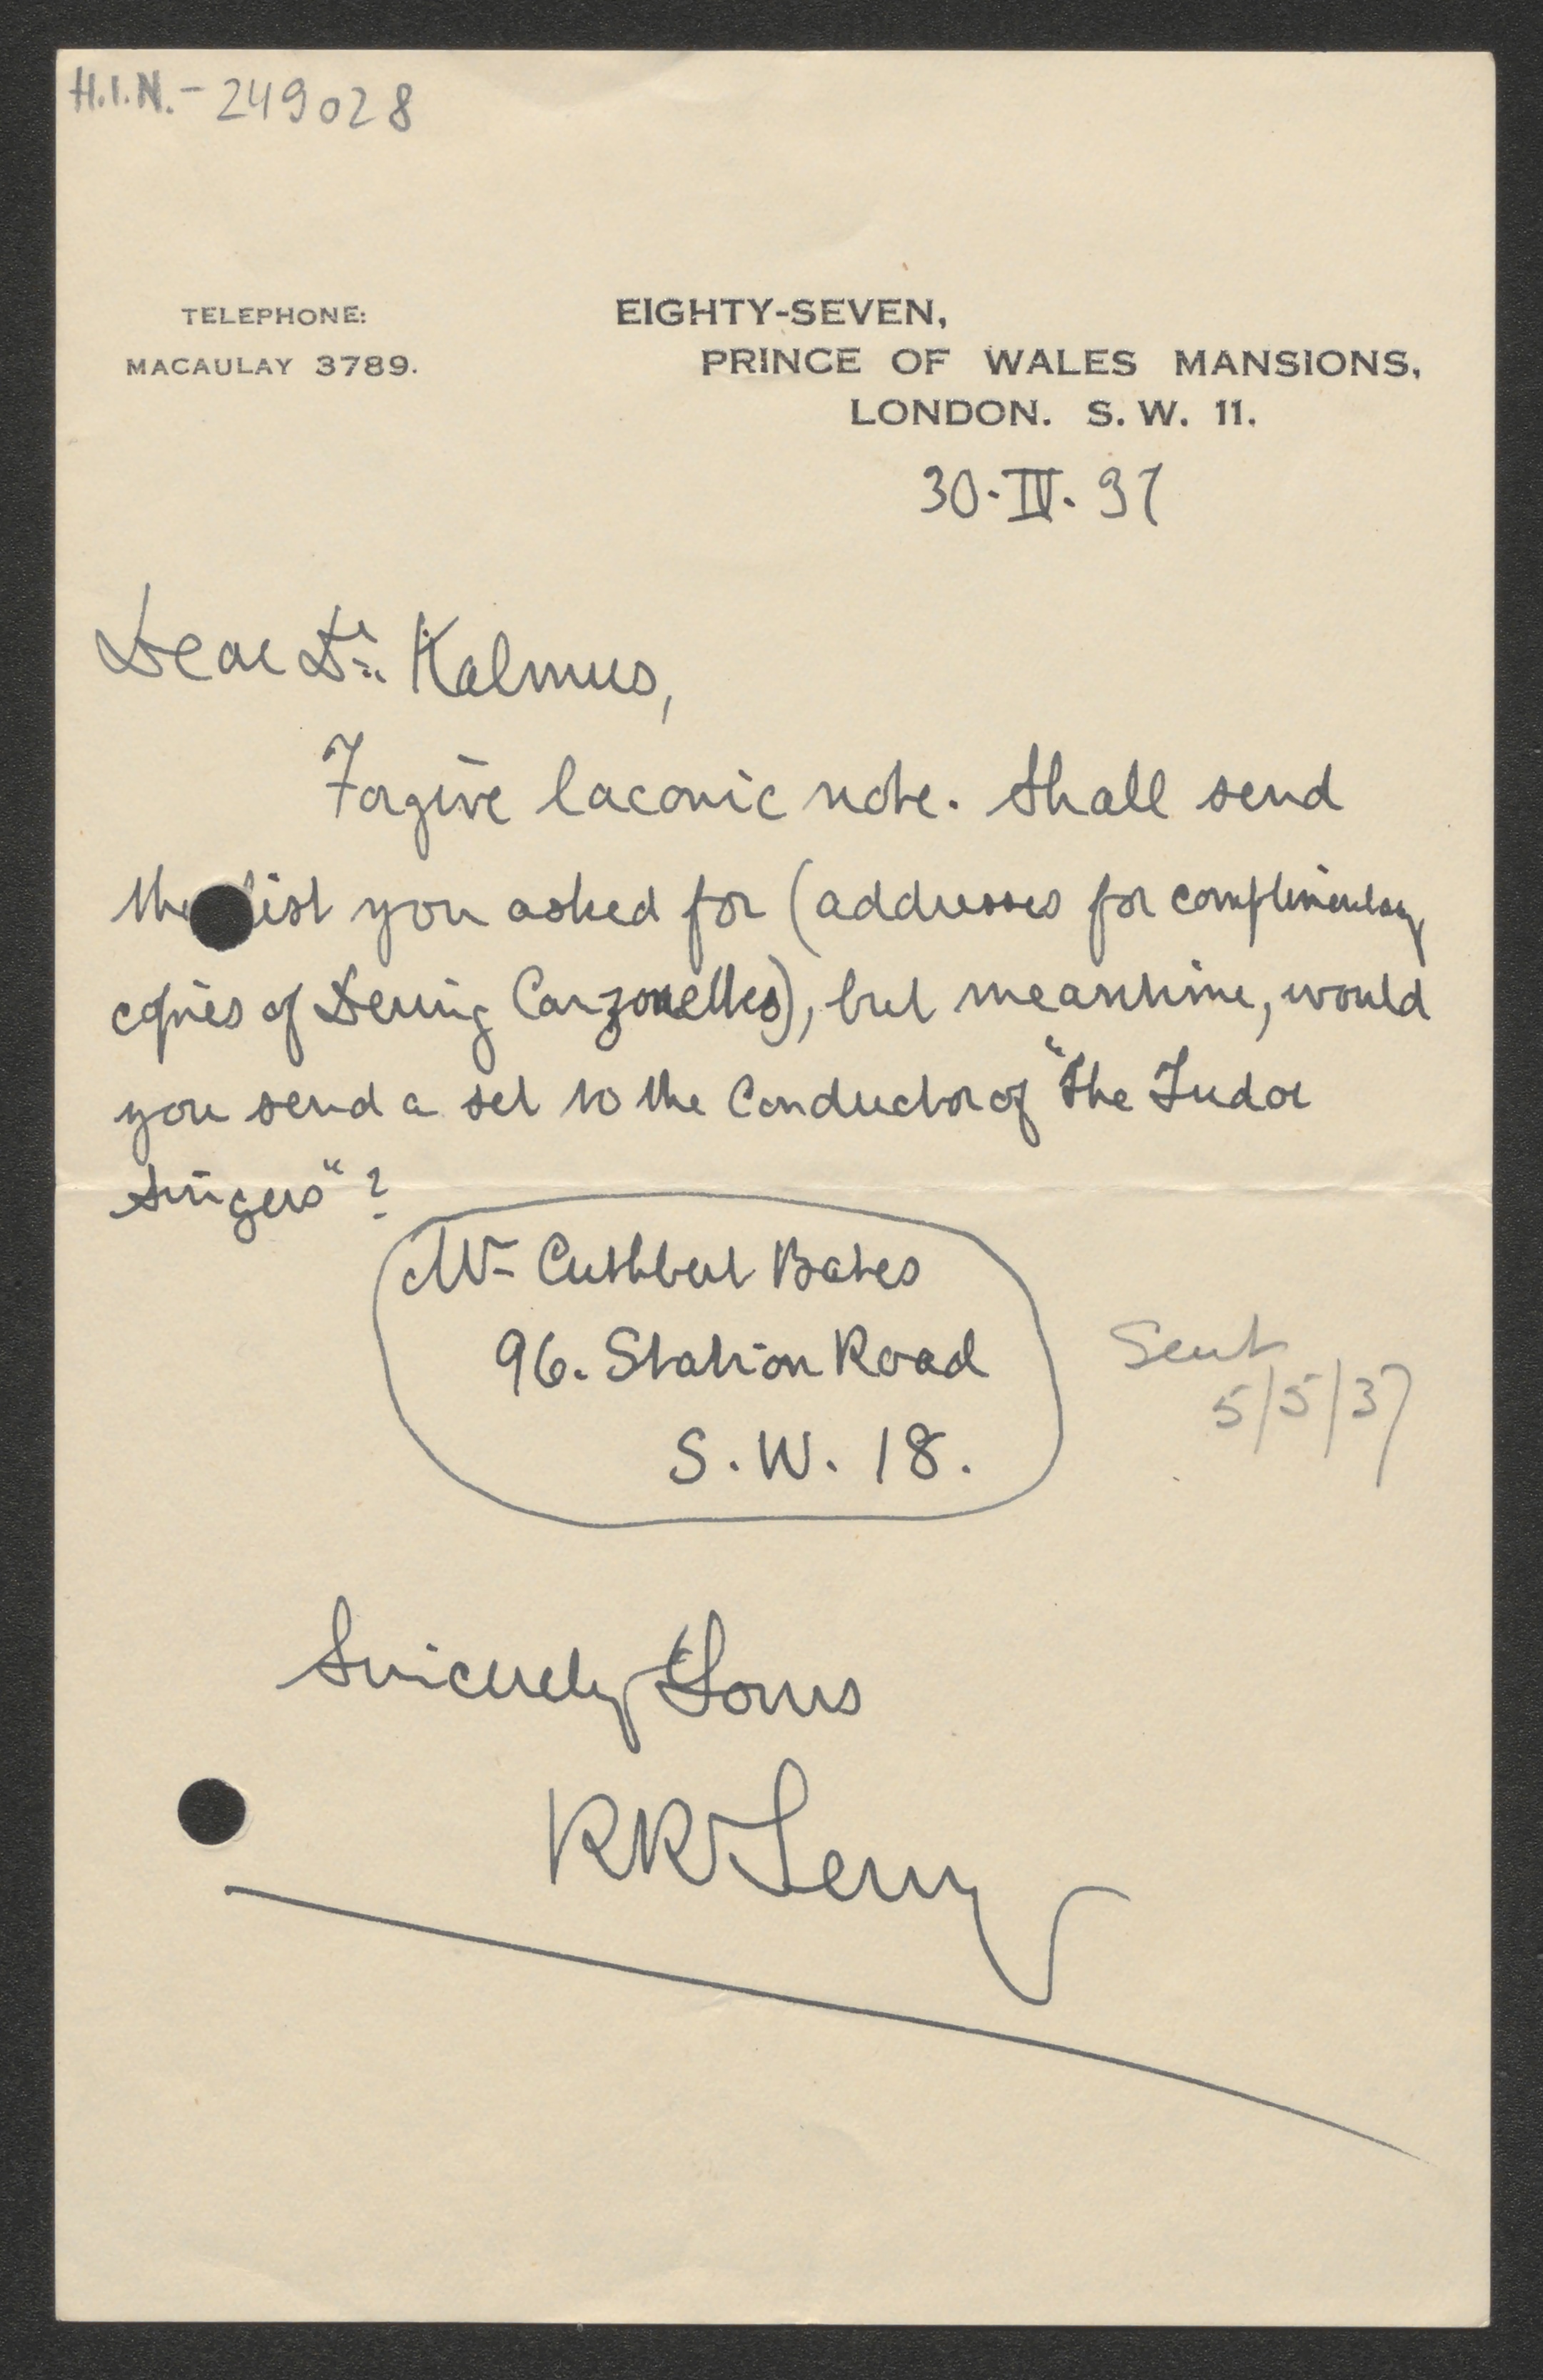 H.I.N.- 249028
TELEPHONE:
MACAULAY 3789.
EIGHTY-SEVEN,
PRINCE OF WALES MANSIONS,
LONDON. S. W. 11.
30-IV. 37
Dear Dr. Kalmus,
Forgive laconic note. Shall send
the list you asked for (addresses for complimentary
copies of Dering Canzonettes), but meantime, would
you send a set to the Conductor of "The Tudor
Singers"?
Mr Cuthbert Bates
96. Station Road
S. W. 18.
Sent
5/5/37
Sincerely Yours
RRTerry